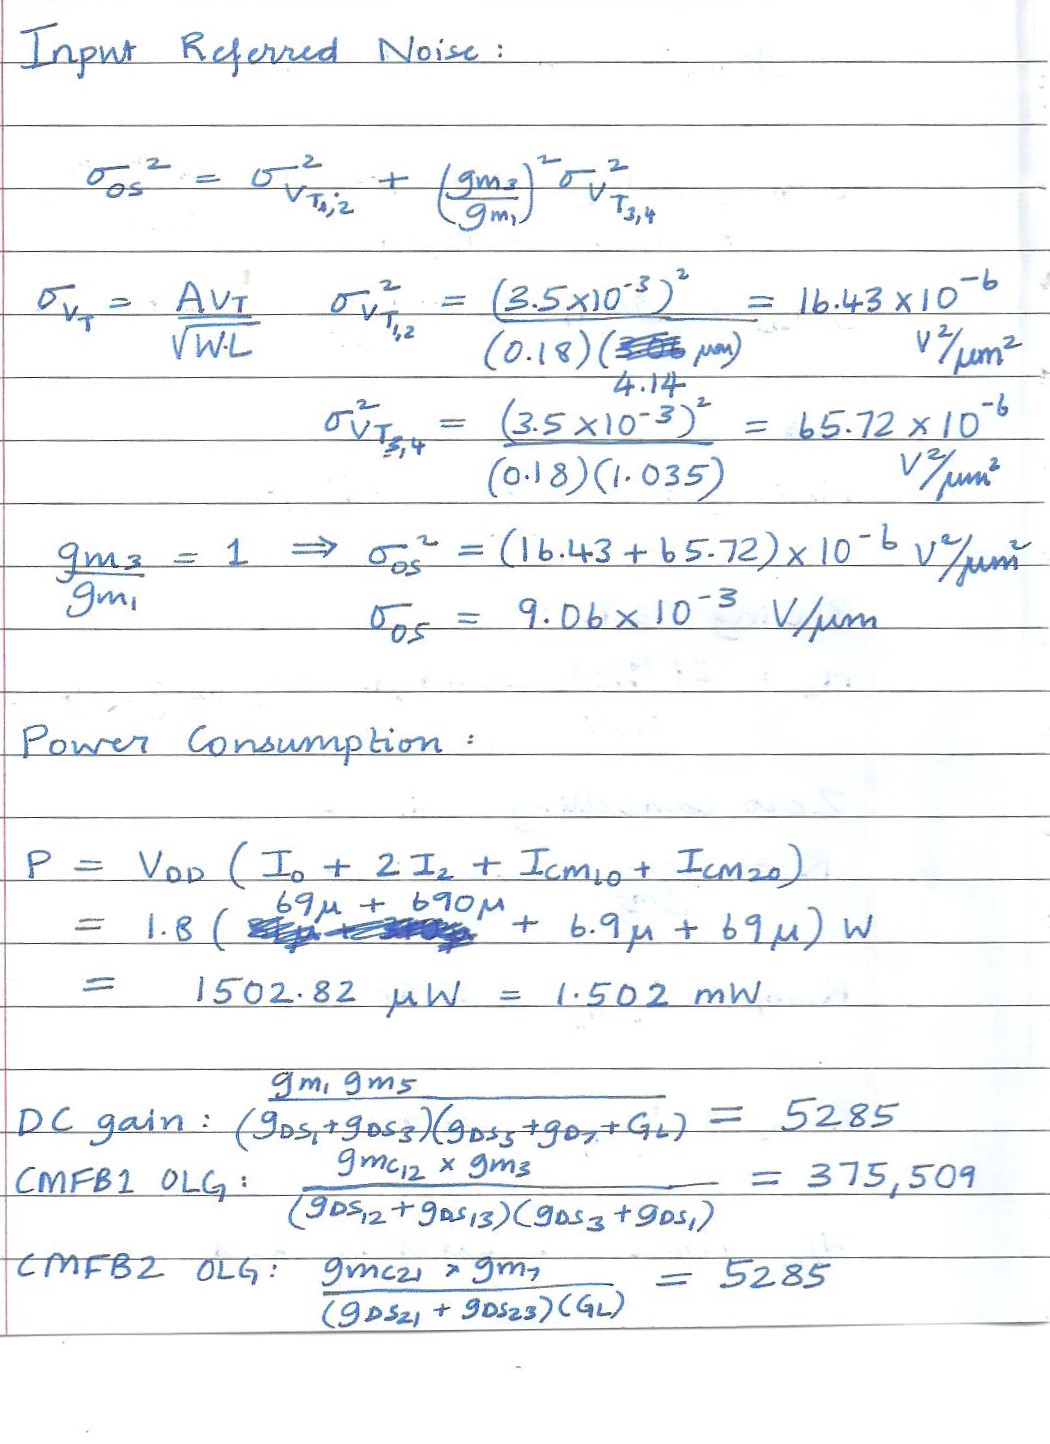 Input Referred Noise :
σ_OS² = σ²_V_T1,2 + (gm3/gm1)² σ²_V_T3,4
σ_VT = AVT/√W.L σ²_V_T1,2 = (3.5×10⁻³)²/(0.18)(4.14 μm) = 16.43 × 10⁻⁶ V²/μm²
σ²_V_T3,4 = (3.5×10⁻³)²/(0.18)(1.035) = 65.72 × 10⁻⁶ V²/μm²
gm3/gm1 = 1 ⇒ σ_OS² = (16.43 + 65.72) × 10⁻⁶ V²/μm²
σ_OS = 9.06 × 10⁻³ V/μm
Power Consumption :
P = V_DD ( I_0 + 2 I_2 + I_CM10 + I_CM20)
= 1.8 ( 69μ + 690μ + 6.9μ + 69μ) W
= 1502.82 μW = 1.502 mW
DC gain : gm1 gm5/(gDS1 + gDS3)(gDS5 + gD7 + GL) = 5285
CMFB1 OLG : gmc12 × gm3/(gDS12 + gDS13)(gDS3 + gDS1) = 375,509
CMFB2 OLG : gmc21 × gm7/(gDS21 + gDS23)(GL) = 5285